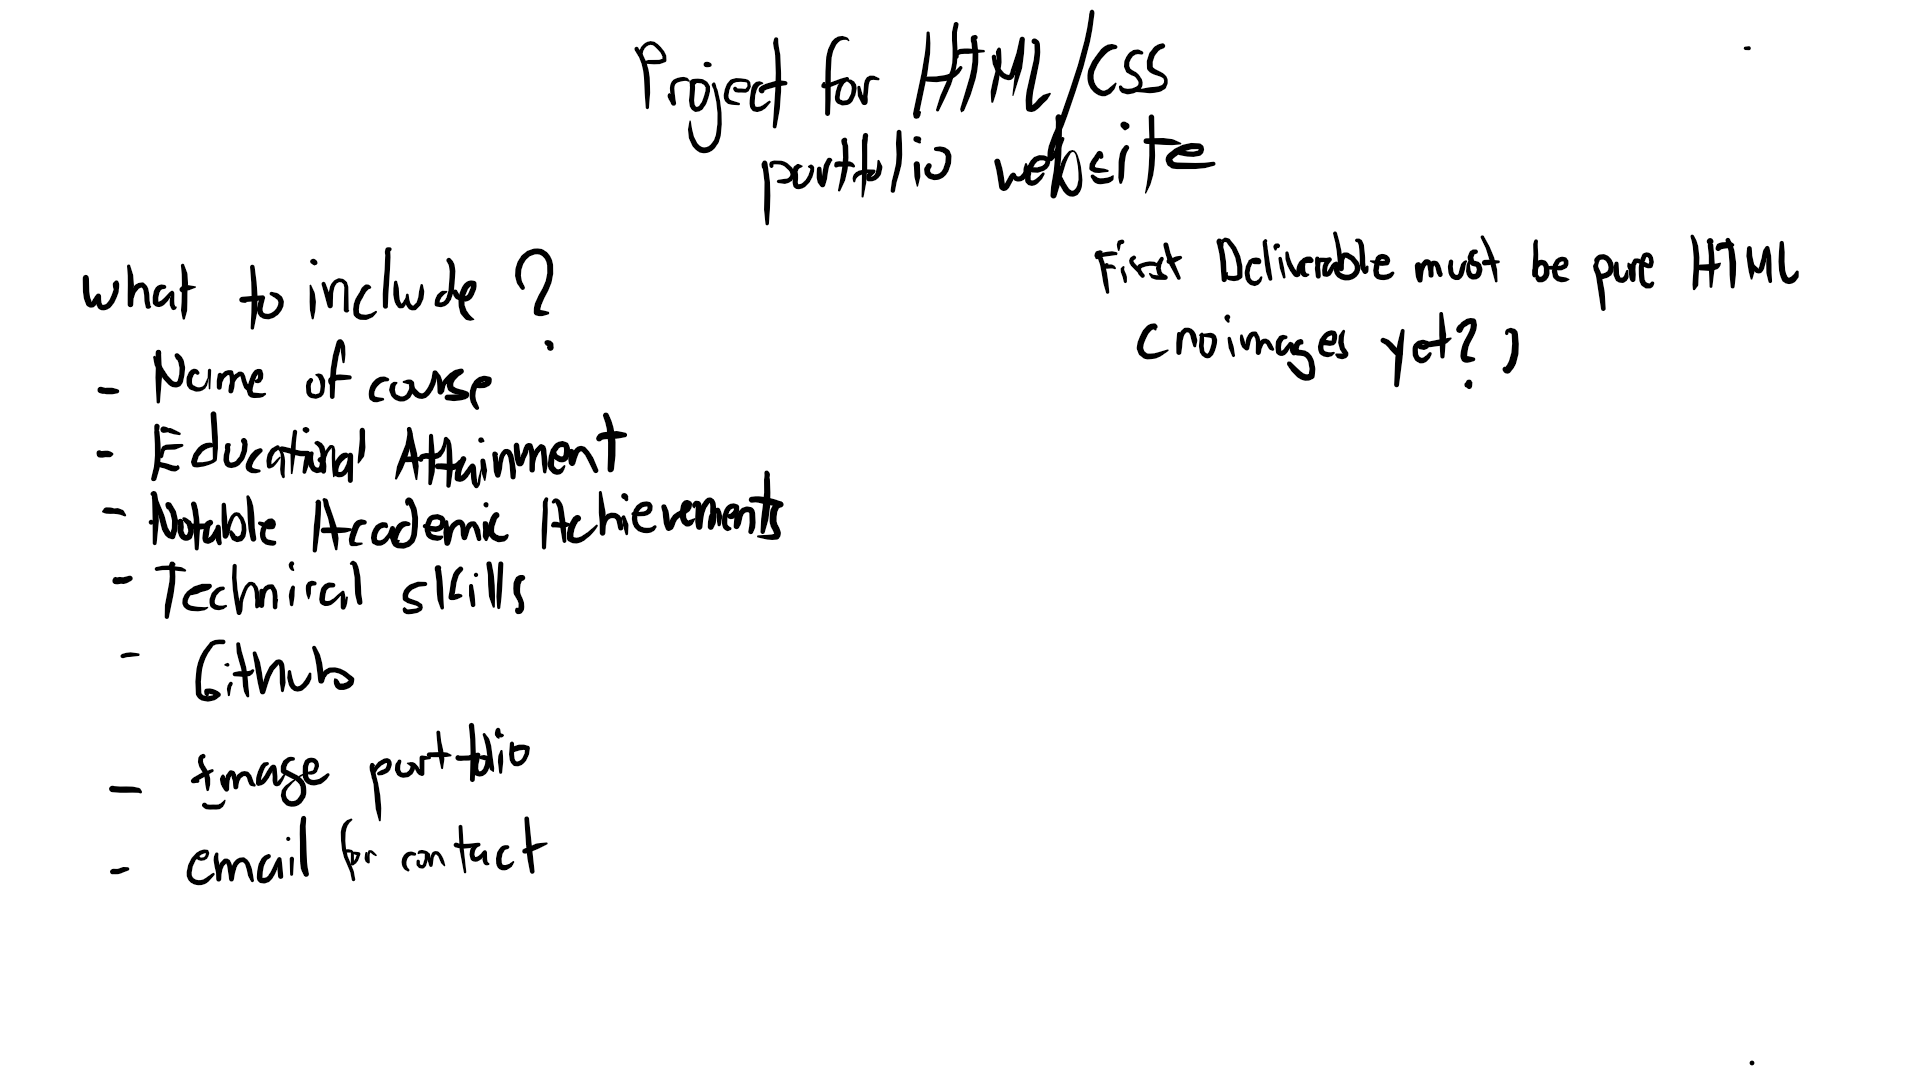 Project for HTML/CSS
portfolio website
what to include?
- Name of course
- Educational Attainment
- Notable Academic Achievements
- Technical skills
- Github
- Image portfolio
- email for contact
First Deliverable must be pure HTML
(no images yet?)